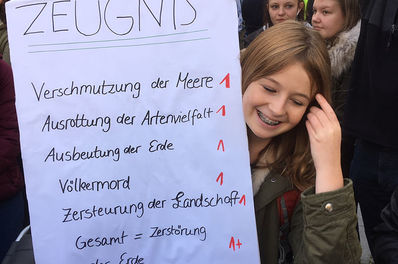 ZEUGNIS
Verschmutzung der Meere 1
Ausrottung der Artenvielfalt 1
Ausbeutung der Erde 1
Völkermord 1
Zersteurung der Landschaft 1
Gesamt = Zerstörung
der Erde 1+